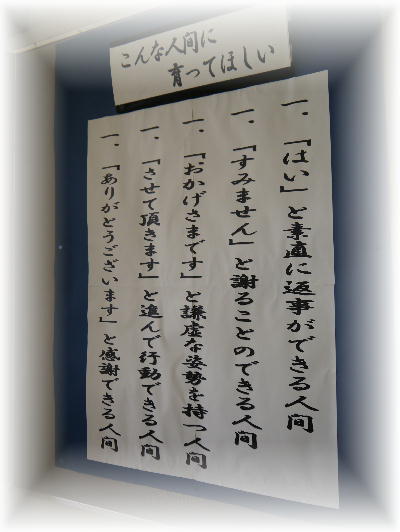 こんな人間に
育ってほしい
一、「はい」と素直に返事ができる人間
一、「すみません」と謝ることのできる人間
一、「おかげさまです」と謙虚な姿勢を持つ人間
一、「させて頂きます」と進んで行動できる人間
一、「ありがとうございます」と感謝できる人間